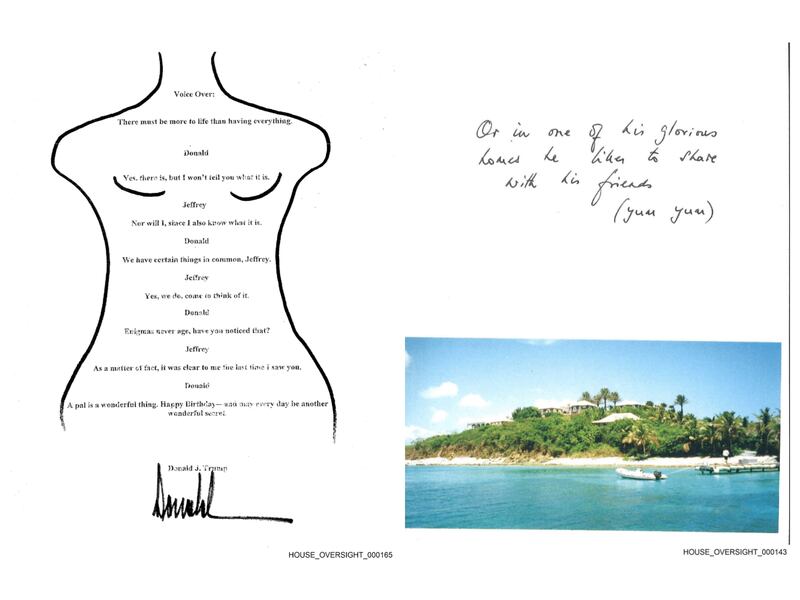 Voice Over:
There must be more to life than having everything.
Donald
Yes, there is, but I won't tell you what it is.
Jeffrey
Nor will I, since I also know what it is.
Donald
We have certain things in common, Jeffrey.
Jeffrey
Yes, we do, come to think of it.
Donald
Enigmas never age, have you noticed that?
Jeffrey
As a matter of fact, it was clear to me the last time I saw you.
Donald
A pal is a wonderful thing. Happy Birthday — and may every day be another
wonderful secret.
Donald J. Trump
Donald
HOUSE_OVERSIGHT_000165
Or in one of his glorious
homes he likes to share
with his friends
(yum yum)
HOUSE_OVERSIGHT_000143